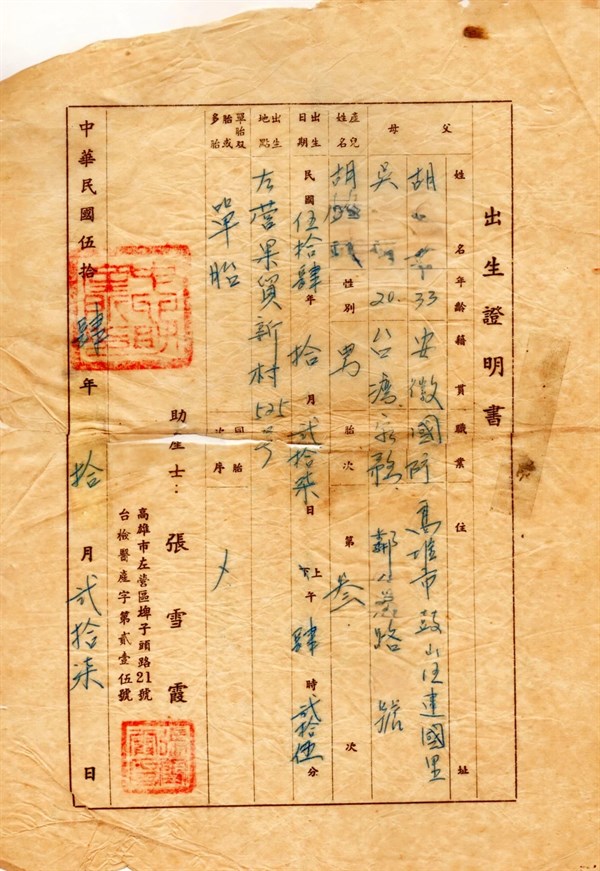 出生證明書
姓名 年齡 籍貫 職業 住址
父 胡 33 安徽 國防 高雄市鼓山區建國里
母 吳 20 台灣 家務 鄰 路 號
產兒姓名 胡 性別 男 胎次 第 叁 次
出生日期 民國 伍拾肆 年 拾 月 貳拾柒 日 上午 肆 時 貳拾伍 分
出生地點 左營果貿新村525号
單胎双胎或多胎 單胎 同胎次序
助產士：張雪霞
高雄市左營區埤子頭路21號
台檢醫產字第貳壹伍號
中華民國伍拾肆年拾月貳拾柒日